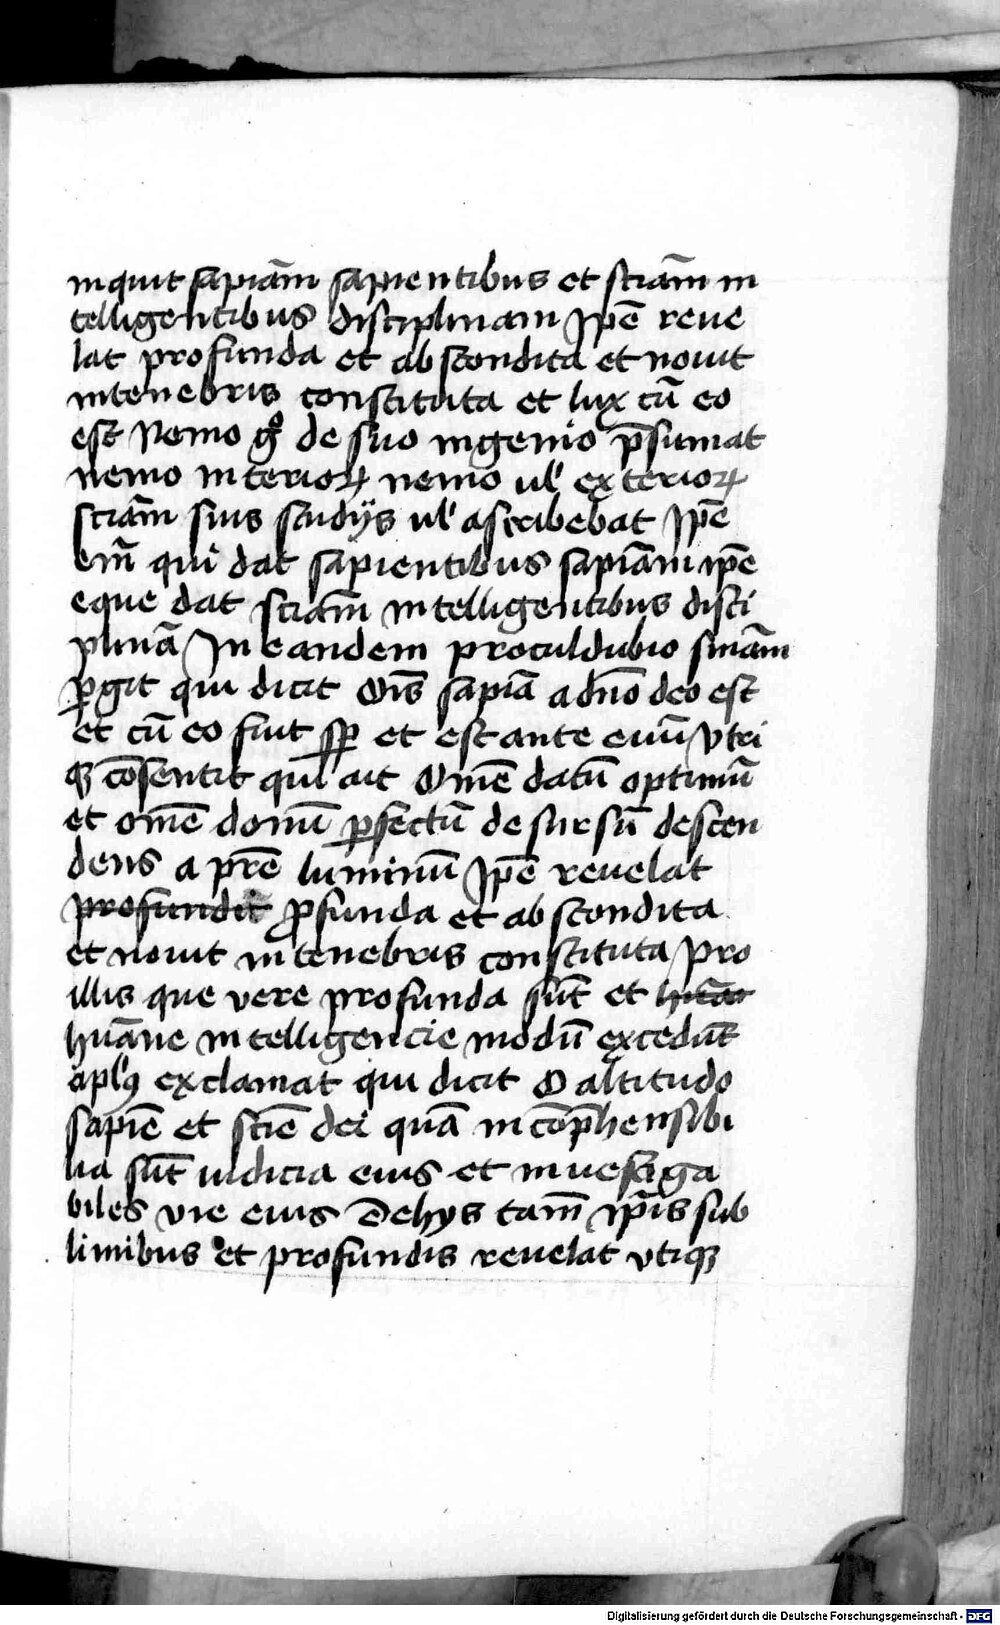 inquit sapiam̄ sapientibus et sciam̄ in
telligentibus disciplinam Ip̄e reue
lat profunda et abscondita et nouit
in tenebris constituta et lux cū eo
est Nemo gͦ de suo ingenio p̄sumat
nemo interioꝝ nemo ul' exterioꝝ
sciam̄ suis studijs ul' ascribebat Ip̄e
em̄ qui dat sapientibus sapiam̄ ip̄e
eque dat sciam̄ intelligentibus disci
plinā In eandem proculdubio sniam̄
ꝑgit qui dicit Oīs sapiā a dn̄o deo est
et cū eo fuit sp̄ et est ante euū Vtri
qꝫ cōsentit qui ait Om̄e datū optimū
et om̄e donū ꝑfectū desursū descen
dens a pr̄e luminū Ip̄e reuelat
profundit ꝓfunda et abscondita
et nouit in tenebris constituta Pro
illis que vere profunda sūt et
huāne intelligencie modū excedūt
apl'ꝯ exclamat qui dicit O altitudo
sapiē et sciē dei quā incōp̄hensibi
lia sūt iudicia eius et inuestiga
biles vie eius De hys tam̄ ip̄is sub
limibus et profundis reuelat vtiqꝫ
Digitalisierung gefördert durch die Deutsche Forschungsgemeinschaft - DFG